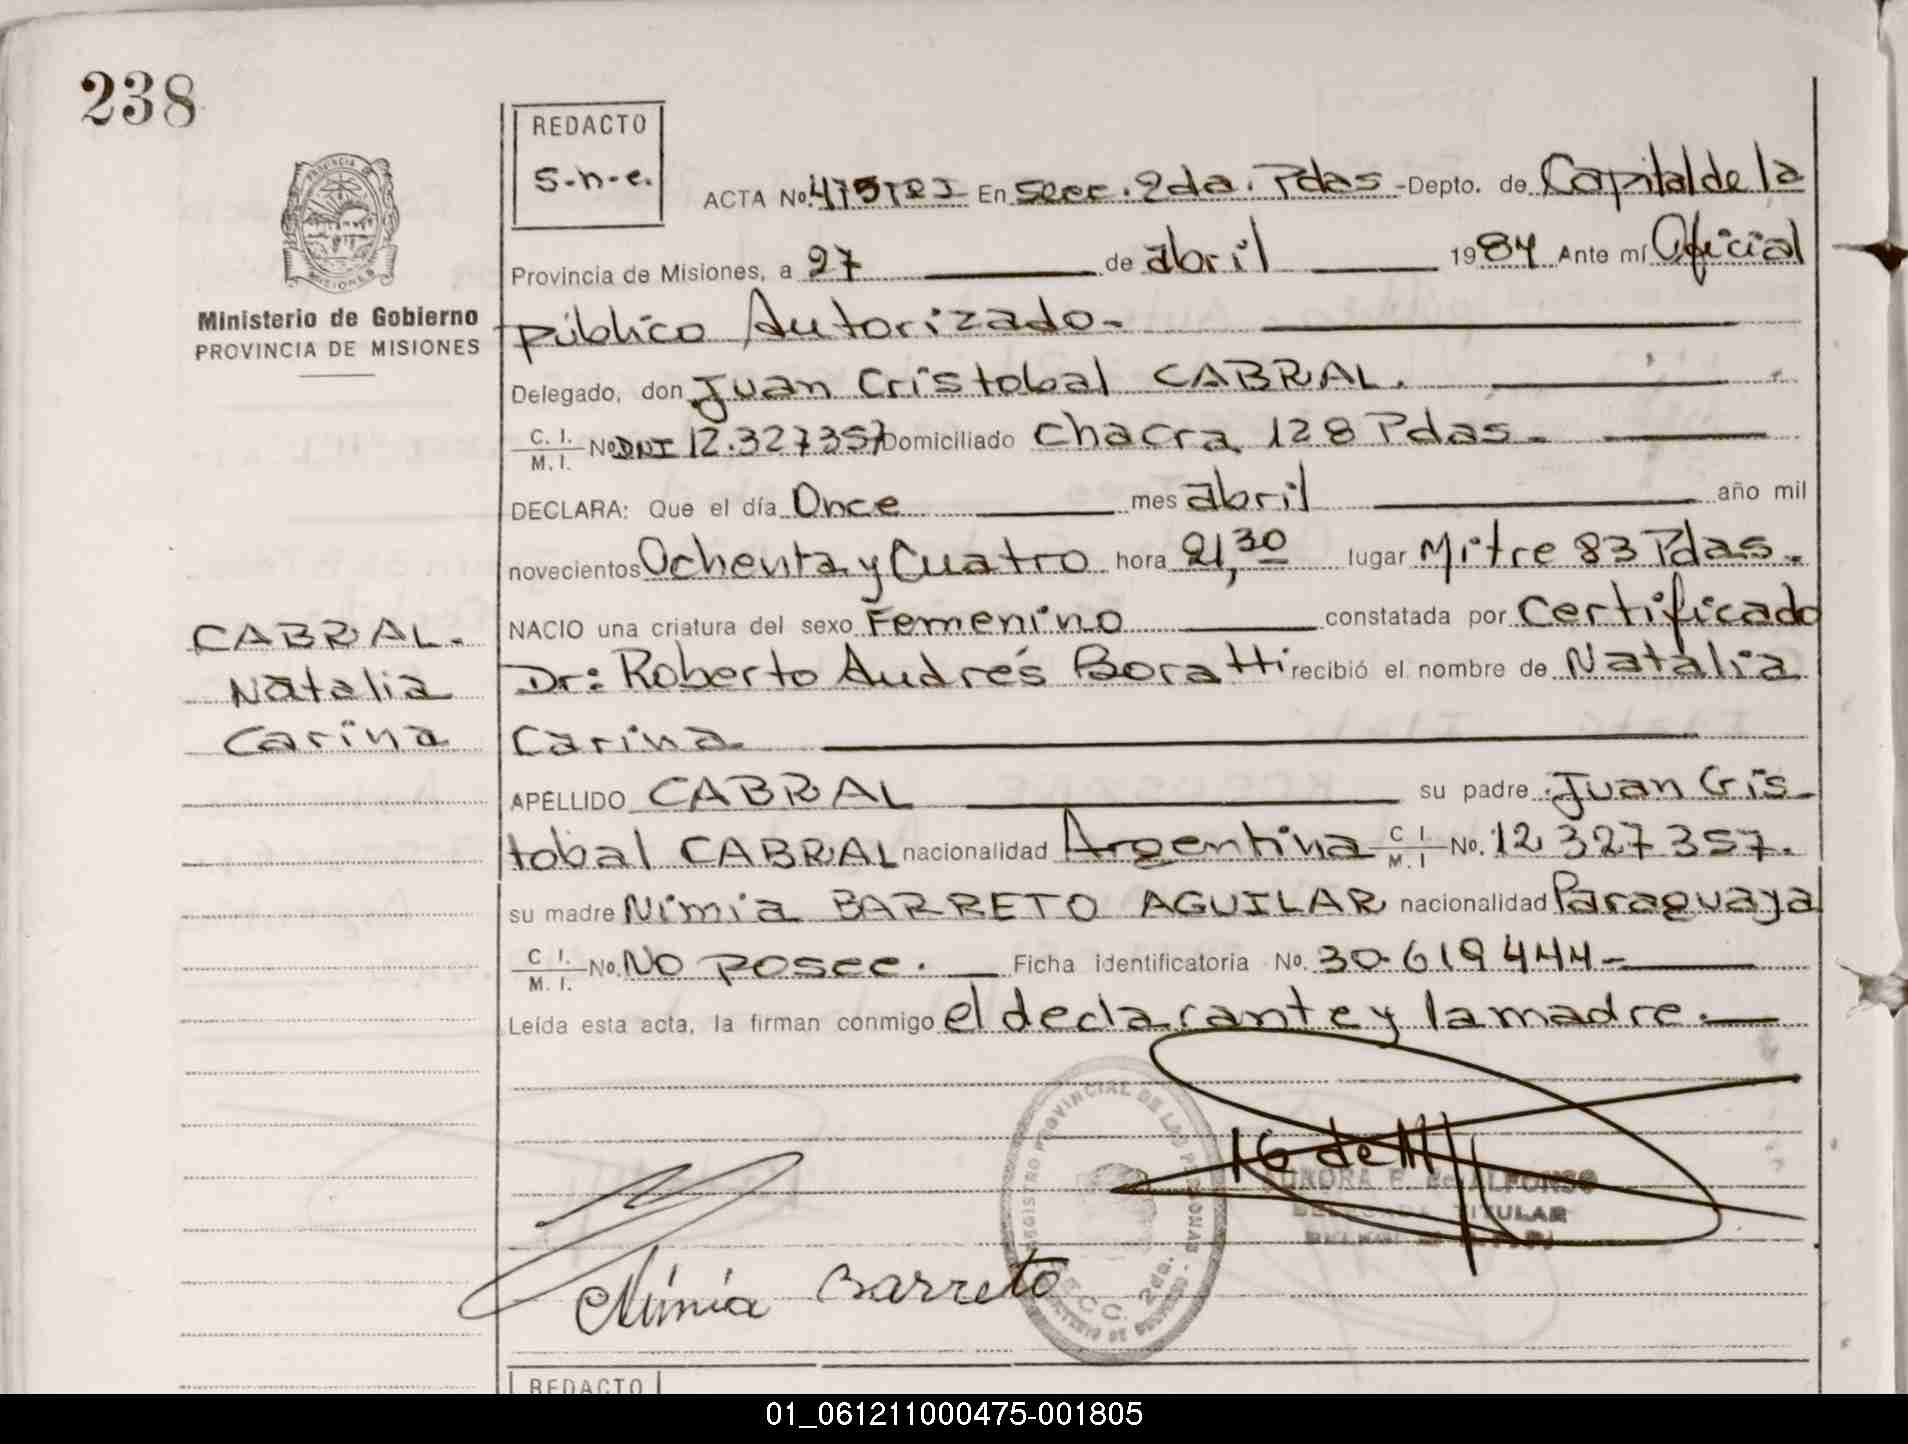 238
REDACTO
s-n-e.
ACTA No. En Secc. 2da. Pdas - Depto. de Capital de la
Provincia de Misiones, a 27 de abril 1984 Ante mí Oficial
público Autorizado-
Ministerio de Gobierno
PROVINCIA DE MISIONES
Delegado, don Juan Cristobal CABRAL.
C. I. M. I. No DNI 12.327357 Domiciliado Chacra 128 Pdas.
DECLARA: Que el día Once mes abril año mil
novecientos Ochenta y Cuatro hora 21,30 lugar Mitre 83 Pdas.
NACIO una criatura del sexo Femenino constatada por Certificado
Dr: Roberto Andrés Boratti recibió el nombre de Natalia
Carina
CABRAL.
Natalia
Carina
APELLIDO CABRAL su padre Juan Cris
tobal CABRAL nacionalidad Argentina C I M. I No. 12 327 357.
su madre Nimia BARRETO AGUILAR nacionalidad Paraguaya
C I. M. I. No. NO POSEE. Ficha identificatoria No. 30.619444-
Leída esta acta, la firman conmigo el declarante y la madre.
REGISTRO PROVINCIAL DE LAS PERSONAS
SECC. 2da.
DE ALFONSO
DELEGADA TITULAR
Nimia Barreto
REDACTO
01_061211000475-001805